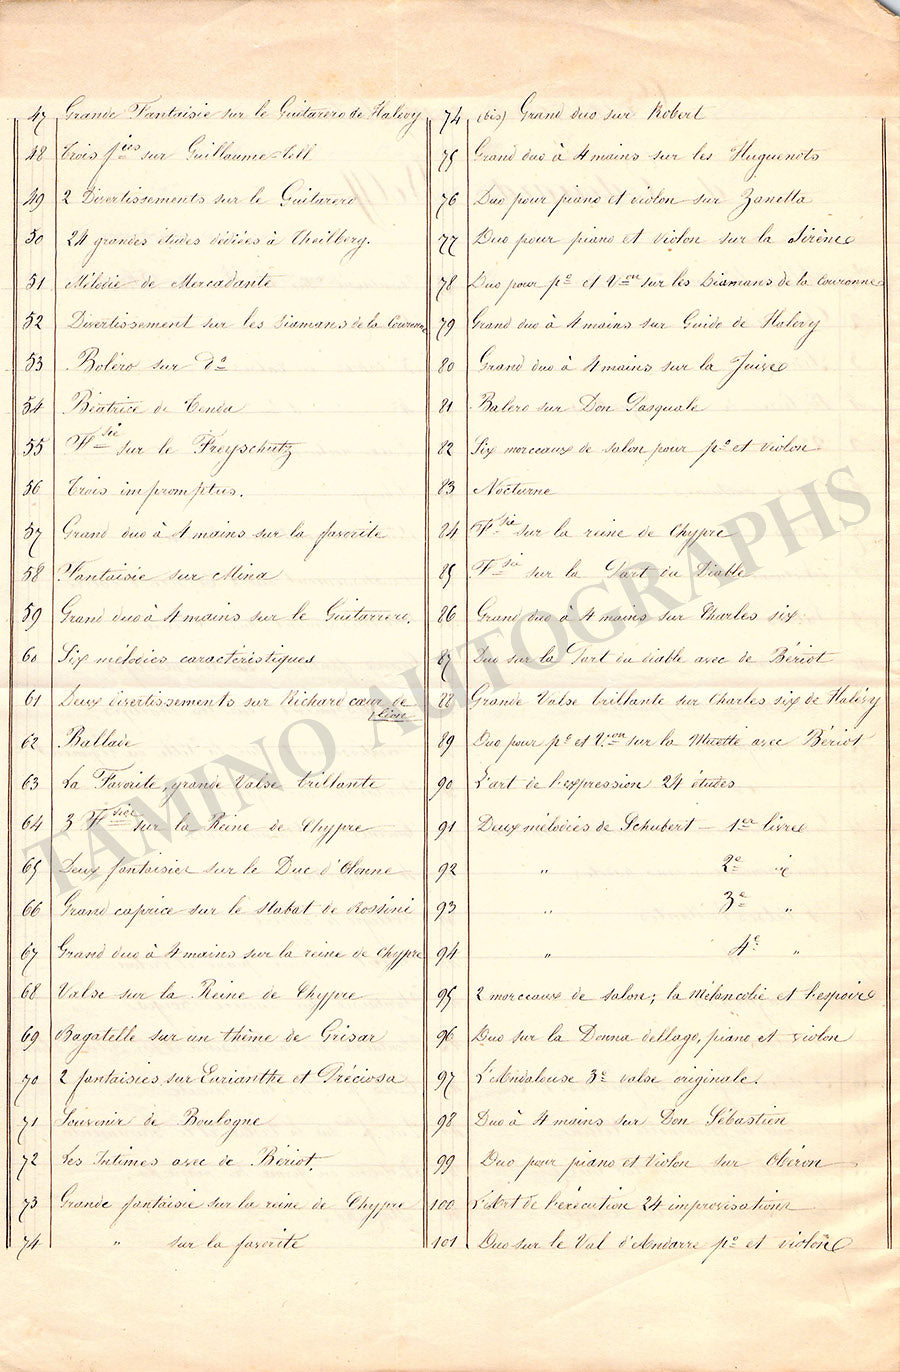 47 Grande Fantaisie sur le Guitarero de Halevy
48 Trois f^ies sur Guillaume-tell
49 2 Divertissements sur le Guitarero
50 24 grandes études dédiées à Theilberg.
51 Mélodie de Mercadante
52 Divertissement sur les diamans de la Couronne
53 Boléro sur d°
54 Béatrice di Tenda
55 F^sie sur le Freyschutz
56 Trois impromptus.
57 Grand duo à 4 mains sur la favorite
58 Fantaisie sur Mina
59 Grand duo à 4 mains sur le Guitarrero.
60 Six mélodies caractéristiques
61 Deux divertissements sur Richard cœur de lion
62 Ballade
63 La Favorite, grande Valse brillante
64 3 F^sies sur la Reine de Chypre
65 Deux fantaisies sur le Duc d'Olonne
66 Grand caprice sur le Stabat de Rossini
67 Grand duo à 4 mains sur la reine de Chypre
68 Valse sur la Reine de Chypre
69 Bagatelle sur un thême de Grisar
70 2 fantaisies sur Eurianthe et Préciosa
71 Souvenir de Boulogne
72 Les Intimes avec de Bériot.
73 Grande fantaisie sur la reine de Chypre
74 " sur la favorite
74 (bis) Grand duo sur Robert
75 Grand duo à 4 mains sur les Huguenots
76 Duo pour piano et violon sur Zanetta
77 Duo pour piano et violon sur la Sirène
78 Duo pour p° et V^on sur les Diamans de la couronne
79 Grand duo à 4 mains sur Guido de Halévy
80 Grand duo à 4 mains sur la Juive
81 Balero sur Don Pasquale
82 Six morceaux de salon pour p° et violon
83 Nocturne
84 F^sie sur la reine de Chypre
85 F^sie sur la Part du Diable
86 Grand duo à 4 mains sur Charles six
87 Duo sur la Part du diable avec de Bériot
88 Grande Valse brillante sur Charles six de Halévy
89 Duo pour p° et V^on sur la Muette avec Bériot
90 L'art de l'expression 24 études
91 Deux mélodies de Schubert – 1^er livre
92 " 2^e id
93 " 3^e "
94 " 4^e "
95 2 morceaux de salon; la Mélancolie et l'espoir
96 Duo sur la Donna dellago, piano et violon
97 L'Andalouse 3^e valse originale.
98 Duo à 4 mains sur Don Sébastien
99 Duo pour piano et Violon sur Obéron
100 L'Art de l'exécution 24 improvisations
101 Duo sur le Val d'Andorre p° et violon
TAMINO AUTOGRAPHS